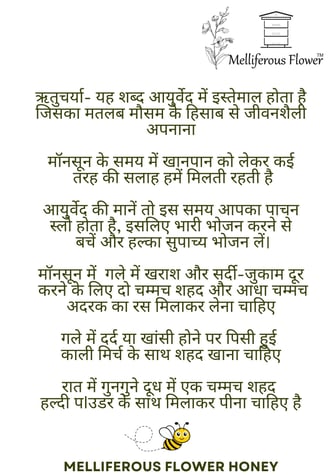 Melliferous Flower™
ऋतुचर्या- यह शब्द आयुर्वेद में इस्तेमाल होता है
जिसका मतलब मौसम के हिसाब से जीवनशैली
अपनाना
मॉनसून के समय में खानपान को लेकर कई
तरह की सलाह हमें मिलती रहती है
आयुर्वेद की मानें तो इस समय आपका पाचन
स्लो होता है, इसलिए भारी भोजन करने से
बचें और हल्का सुपाच्य भोजन लें।
मॉनसून में गले में खराश और सर्दी-जुकाम दूर
करने के लिए दो चम्मच शहद और आधा चम्मच
अदरक का रस मिलाकर लेना चाहिए
गले में दर्द या खांसी होने पर पिसी हुई
काली मिर्च के साथ शहद खाना चाहिए
रात में गुनगुने दूध में एक चम्मच शहद
हल्दी पाउडर के साथ मिलाकर पीना चाहिए है
MELLIFEROUS FLOWER HONEY